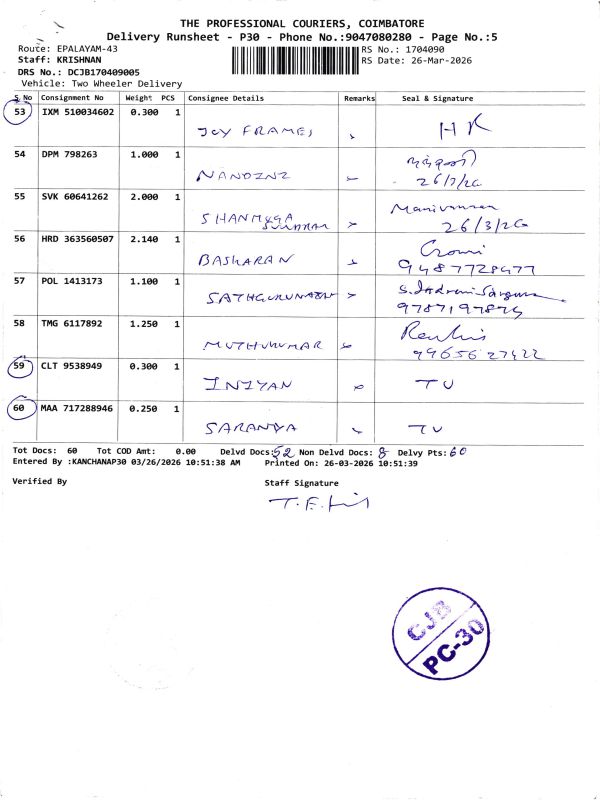 THE PROFESSIONAL COURIERS, COIMBATORE
Delivery Runsheet - P30 - Phone No.:9047080280 - Page No.:5
Route: EPALAYAM-43 RS No.: 1704090
Staff: KRISHNAN RS Date: 26-Mar-2026
DRS No.: DCJB170409005
Vehicle: Two Wheeler Delivery
S.No Consignment No Weight PCS Consignee Details Remarks Seal & Signature
53 IXM 510034602 0.300 1 JOY FRAMES HR
54 DPM 798263 1.000 1
55 SVK 60641262 2.000 1 SHANMUGA SUNDARAM Manivannan
26/3/26
56 HRD 363560507 2.140 1 BASKARAN
9487728477
57 POL 1413173 1.100 1 SATHGURUNATHAN
58 TMG 6117892 1.250 1 MUTHUKUMAR
9965627422
59 CLT 9538949 0.300 1 INIYAN TU
60 MAA 717288946 0.250 1 SARANYA TU
Tot Docs: 60 Tot COD Amt: 0.00 Delvd Docs: 52 Non Delvd Docs: 8 Delvy Pts: 60
Entered By :KANCHANAP30 03/26/2026 10:51:38 AM Printed On: 26-03-2026 10:51:39
Verified By Staff Signature
CJB
PC-30